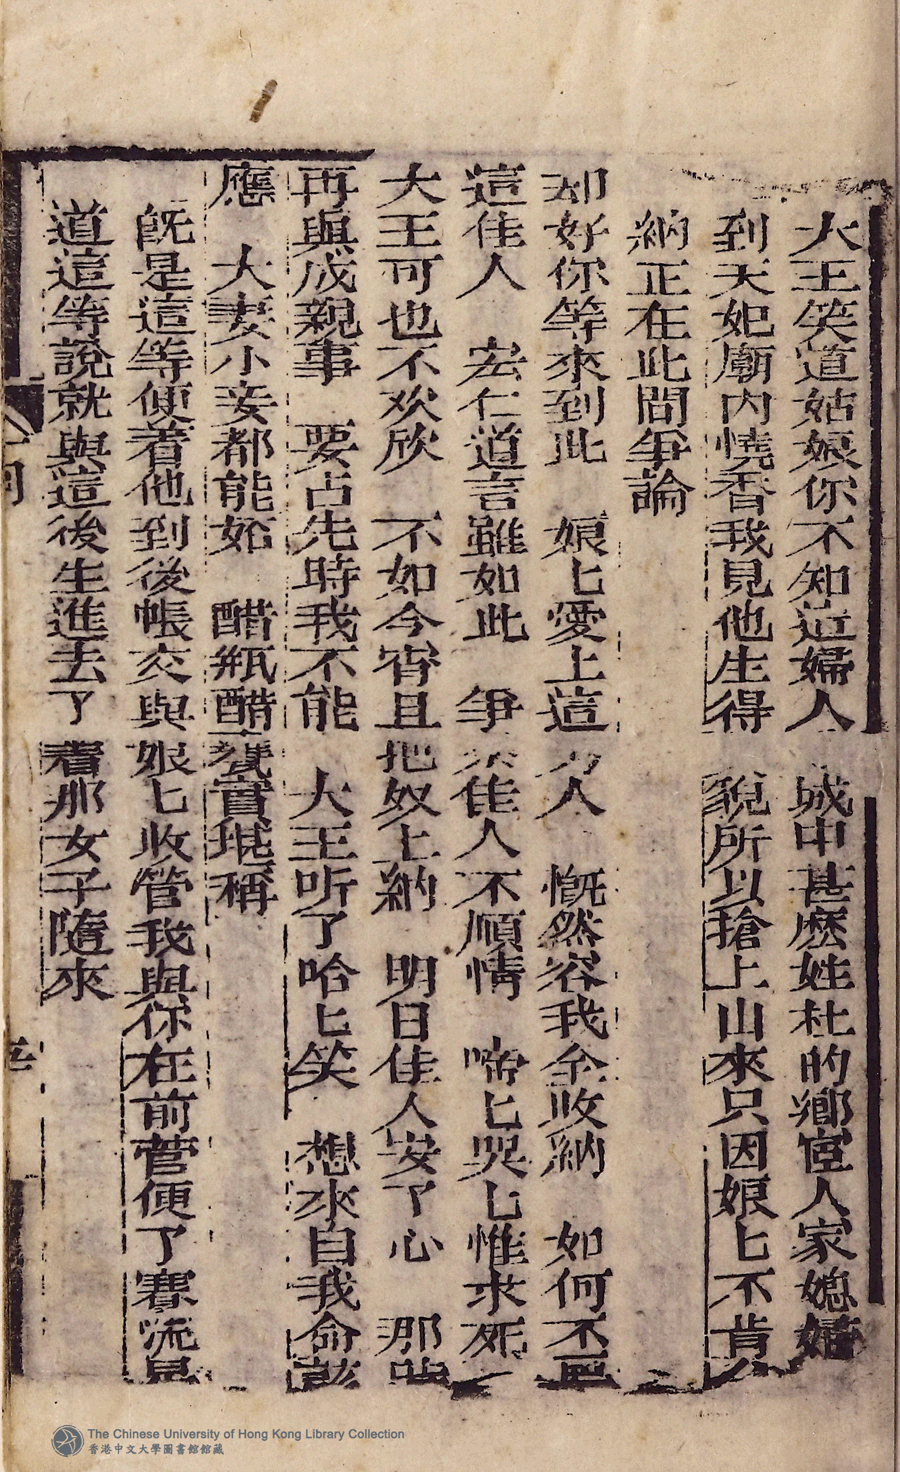 大王笑道姑娘你不知這婦人 城中甚麽姓杜的鄉宦人家媳婦
到天妃廟內燒香我見他生得 貌所以搶上山來只因娘匕不肯
納正在此間爭論
却好你等來到此 娘匕愛上這 人 慨然容我全收納 如何不
這佳人 宏仁道言雖如此 爭 佳人不順情 啼匕哭匕惟求死
大王可也不欢欣 不如今宵且把奴上納 明日佳人安了心 那時
再與成親事 要占先時我不能 大王听了哈匕笑 想來自我命該
應 大妻小妾都能妬 醋瓶醋甕實堪稱
既是這等便着他到後帳交與娘匕收管我與你在前營便了賽流星
道這等說就與這後生進去了 着那女子隨來
The Chinese University of Hong Kong Library Collection
香港中文大學圖書館館藏